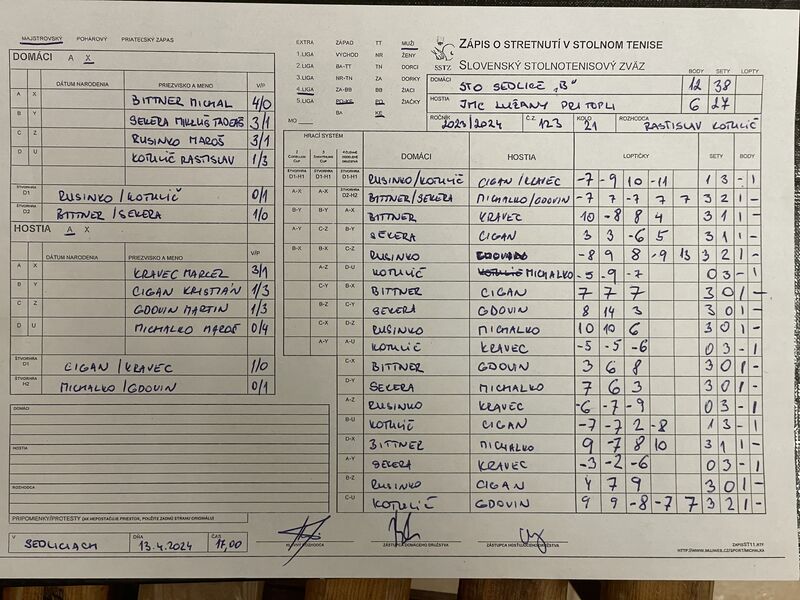 MAJSTROVSKÝ POHÁROVÝ PRIATEĽSKÝ ZÁPAS
DOMÁCI A X
DÁTUM NARODENIA PRIEZVISKO A MENO V/P
A X BITTNER MICHAL 4/0
B Y SEKERA MIKULÁŠ TADEÁŠ 3/1
C Z RUSINKO MAROŠ 3/1
D U KOTULIČ RASTISLAV 1/3
ŠTVORHRA D1 RUSINKO/KOTULIČ 0/1
ŠTVORHRA D2 BITTNER/SEKERA 1/0
HOSTIA A X
DÁTUM NARODENIA PRIEZVISKO A MENO V/P
A X KRAVEC MARCEL 3/1
B Y CIGAN KRISTIÁN 1/3
C Z GDOVIN MARTIN 1/3
D U MICHALKO MAROŠ 0/4
ŠTVORHRA D1 CIGAN/KRAVEC 1/0
ŠTVORHRA H2 MICHALKO/GDOVIN 0/1
DOMÁCI
HOSTIA
ROZHODCA
PRIPOMIENKY/PROTESTY (AK NEPOSTAČUJE PRIESTOR, POUŽITE ZADNÚ STRANU ORIGINÁLU)
V SEDLICIACH DŇA 13.4.2024 ČAS 17,00
EXTRA ZÁPAD TT MUŽI
1.LIGA VÝCHOD NR ŽENY
2.LIGA BA-TT TN DORCI
3.LIGA NR-TN ZA DORKY
4.LIGA ZA-BB BB ŽIACI
5.LIGA PO-KE PO ŽIAČKY
BA KE
MO
SSTZ
ZÁPIS O STRETNUTÍ V STOLNOM TENISE
SLOVENSKÝ STOLNOTENISOVÝ ZVÄZ
BODY SETY LOPTY
DOMÁCI STO SEDLICE „B" 12 38
HOSTIA JMC LUŽANY PRI TOPLI 6 27
ROČNÍK 2023/2024 Č.Z. 123 KOLO 21 ROZHODCA RASTISLAV KOTULIČ
HRACÍ SYSTÉM
DOMÁCI HOSTIA LOPTIČKY SETY BODY
D1-H1 D1-H1 D1-H1 RUSINKO/KOTULIČ CIGAN/KRAVEC -7 -9 10 -11 1 3 - 1
A-X A-X D2-H2 BITTNER/SEKERA MICHALKO/GDOVIN -7 7 -7 7 7 3 2 1 -
B-Y B-Y A-X BITTNER KRAVEC 10 -8 8 4 3 1 1 -
A-Y C-Z B-Y SEKERA CIGAN 3 3 -6 5 3 1 1 -
B-X B-X C-Z RUSINKO GDOVIN -8 9 8 -9 13 3 2 1 -
A-Z D-U KOTULIČ KOTULIČ MICHALKO -5 -9 -7 0 3 - 1
C-Y B-X BITTNER CIGAN 7 7 7 3 0 1 -
B-Z C-Y SEKERA GDOVIN 8 14 3 3 0 1 -
C-X D-Z RUSINKO MICHALKO 10 10 6 3 0 1 -
A-Y A-U KOTULIČ KRAVEC -5 -5 -6 0 3 - 1
C-X BITTNER GDOVIN 3 6 8 3 0 1 -
D-Y SEKERA MICHALKO 7 6 3 3 0 1 -
A-Z RUSINKO KRAVEC -6 -7 -9 0 3 - 1
B-U KOTULIČ CIGAN -7 -7 2 -8 1 3 - 1
D-X BITTNER MICHALKO 9 -7 8 10 3 1 1 -
A-Y SEKERA KRAVEC -3 -2 -6 0 3 - 1
B-Z RUSINKO CIGAN 4 7 9 3 0 1 -
C-U KOTULIČ GDOVIN 9 9 -8 -7 7 3 2 1 -
ROZHODCA ZÁSTUPCA DOMÁCEHO DRUŽSTVA ZÁSTUPCA HOSŤUJÚCEHO DRUŽSTVA
ZAPISST11.RTF